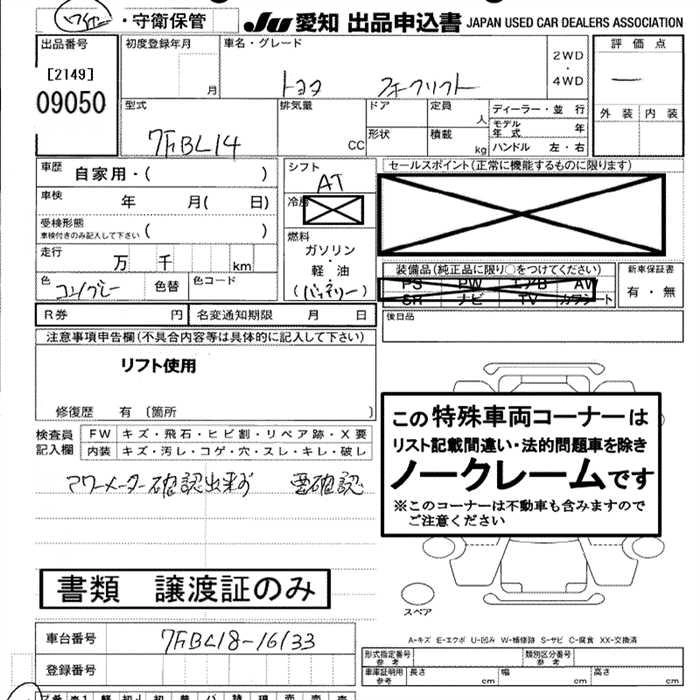 ・守衛保管
JU 愛知 出品申込書 JAPAN USED CAR DEALERS ASSOCIATION
出品番号
[2149]
09050
初度登録年月
月
車名・グレード
トヨタ フォークリフト
2WD
・
4WD
評価点
外装 内装
型式
7FBL14
排気量
CC
ドア
形状
定員
人
積載
kg
ディーラー・並行
モデル年式 年
ハンドル 左・右
車歴
自家用・( )
車検
年 月( 日)
受検形態
車検付きのみ記入して下さい ( )
走行
万 千 km
色
コン/グレー
色替
色コード
シフト
AT
冷房
燃料
ガソリン
・
軽・油
(バッテリー)
セールスポイント(正常に機能するものに限ります)
装備品(純正品に限り○をつけてください)
PS PW エアB AW
SR ナビ TV カワシート
新車保証書
有・無
R券 円
名変通知期限 月 日
後日品
注意事項申告欄(不具合内容等は具体的に記入して下さい)
リフト使用
修復歴 有 〔箇所 〕
検査員
記入欄
FW キズ・飛石・ヒビ割・リペア跡・X要
内装 キズ・汚レ・コゲ・穴・スレ・キレ・破レ
アワーメーター確認出来ず 要確認
この特殊車両コーナーは
リスト記載間違い・法的問題車を除き
ノークレームです
※このコーナーは不動車も含みますので
ご注意ください
書類 譲渡証のみ
スペア
A-キズ E-エクボ U-凹み W-補修跡 S-サビ C-腐食 XX-交換済
車台番号
7FBL18-16133
登録番号
形式指定番号
参考
類別区分番号
参考
車庫証明用
参考
長さ cm
幅 cm
高さ cm